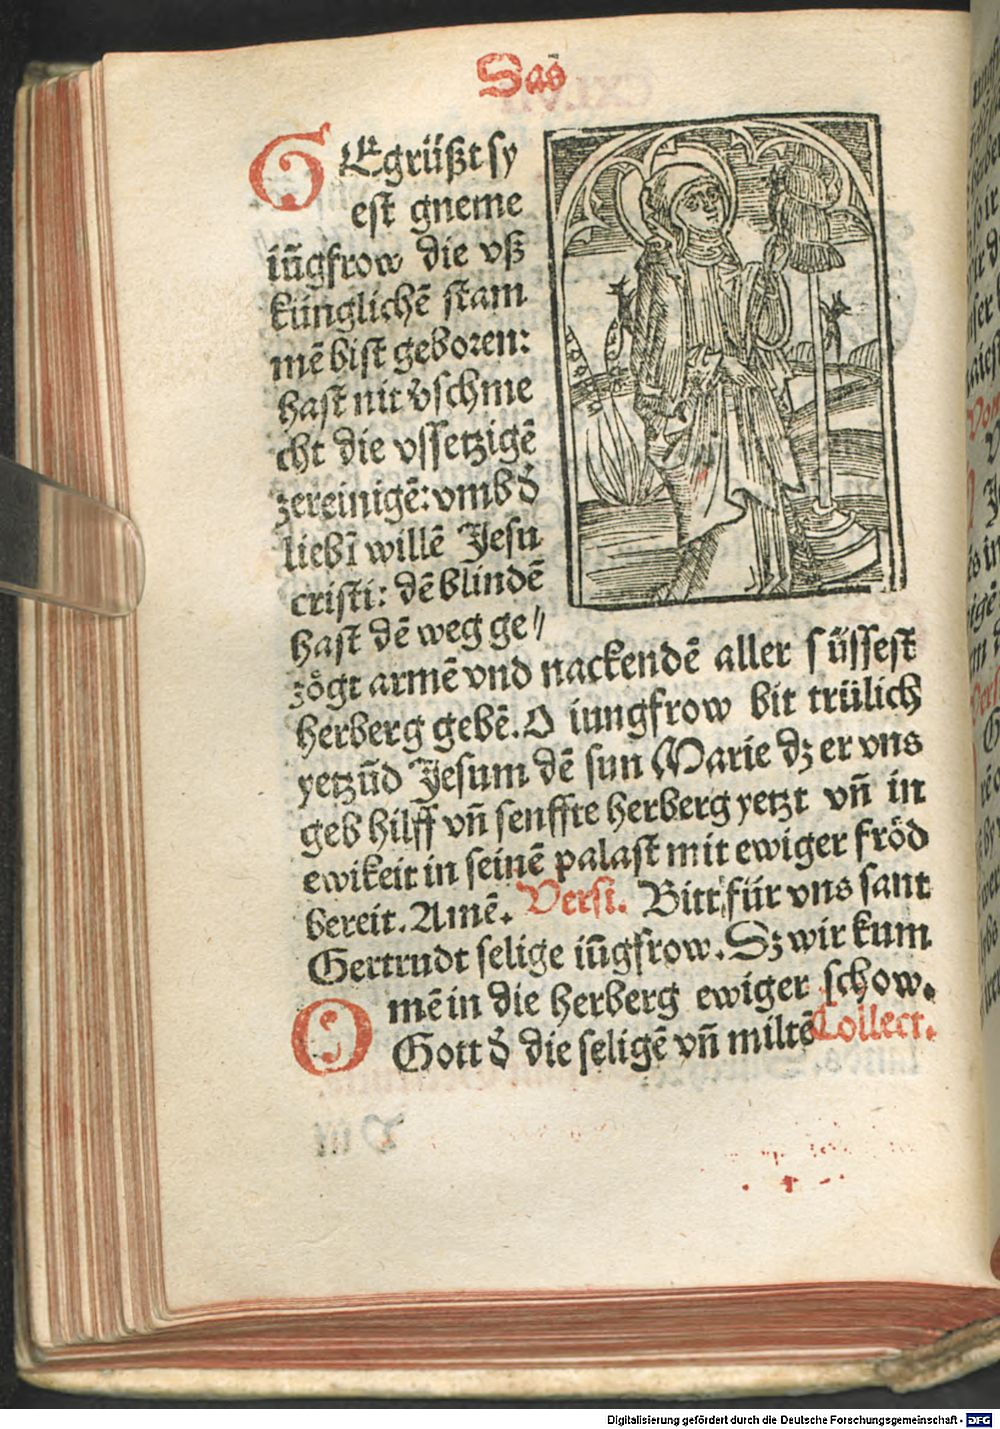 Das
GEgrüßt sy
est gneme
iūgfrow die vß
künglichē stam
mē bist geboren:
hast nit v̄schme
cht die vssetzigē
zereinigē: vmb d̄
liebī willē Jesu
cristi: dē blindē
hast dē weg ge⸗
zögt armē vnd nackendē aller süssest
herberg gebē. O iungfrow bit trülich
yetzūd Jesum dē sun Marie dz er vns
geb hilff vn̄ senffte herberg yetzt vn̄ in
ewikeit in seinē palast mit ewiger fröd
bereit. Amē. Versi. Bitt für vns sant
Gertrudt selige iūgfrow. Sz wir kum
mē in die herberg ewiger schow.
O Gott d̄ die seligē vn̄ miltē Collect.
Digitalisierung gefördert durch die Deutsche Forschungsgemeinschaft - DFG